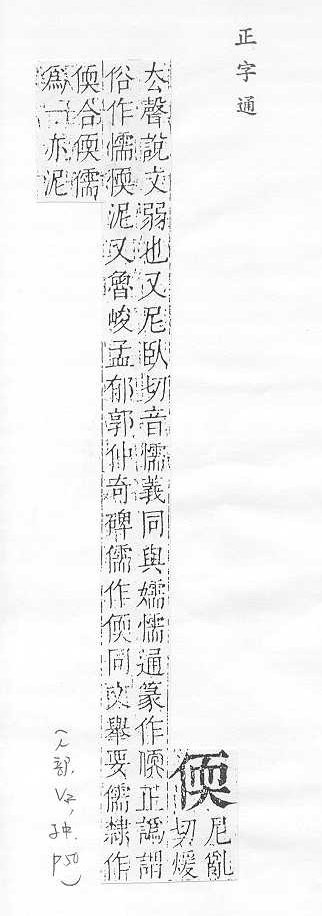 正字通
偄
尼亂
切煖
厺聲說文弱也又尼臥切音懦義同與嬬懦通篆作偄正譌謂
俗作懦愞泥又魯峻孟郁郭仲奇碑儒作偄同文舉要儒隸作
偄合偄儒
爲一亦泥
(人部, V2, 子中, P50)